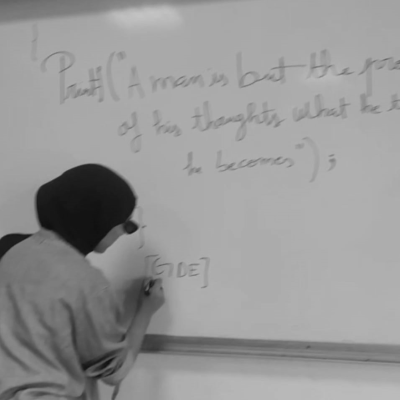 {
Printf("A man is but the pro
of his thoughts what he t
he becomes");
}
[GDE]